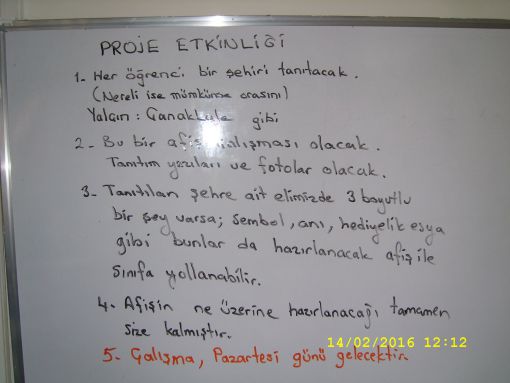 PROJE ETKİNLİĞİ
1- Her öğrenci bir şehiri tanıtacak.
(Nereli ise mümkünse orasını)
Yalçın : Çanakkale gibi
2- Bu bir afiş çalışması olacak.
Tanıtım yazıları ve fotolar olacak.
3- Tanıtılan şehre ait elimizde 3 boyutlu
bir şey varsa; sembol, anı, hediyelik eşya
gibi bunlar da hazırlanacak afiş ile
sınıfa yollanabilir.
4- Afişin ne üzerine hazırlanacağı tamamen
size kalmıştır.
14/02/2016 12:12
5- Çalışma, Pazartesi günü gelecektir.